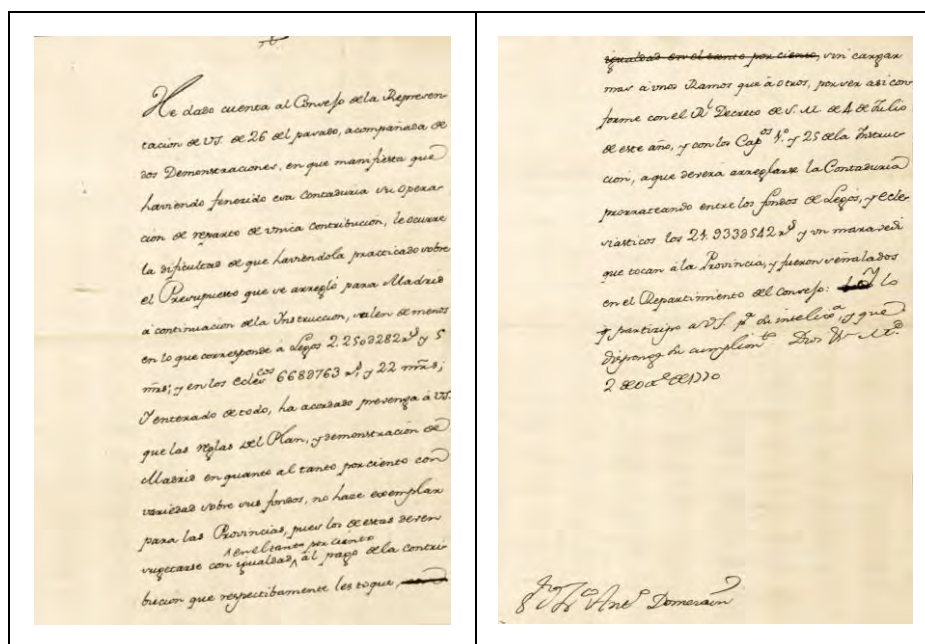 He dado cuenta al Consejo de la Represen-
tacion de VS. de 26 del pasado, acompañada de
dos Demonstraciones, en que manifiesta que
haviendo fenecido esa Contaduria su opera-
cion de reparto de vnica contribucion, le ocurre
la dificultad de que haviendola practicado sobre
el Presupuesto que se arregló para Madrid
á continuacion de la Ynstruccion, salen de menos
en lo que corresponde á Legos 2.250U282 rs. y 5
mrs; y en los ecleros 668U763 rs. y 22 mrs;
Y enterado de todo, ha acordado prevenga á VS.
que las reglas del Plan, y demonstracion de
Madrid en quanto al tanto por ciento con
variedad sobre sus fondos, no hace exemplar
para las Provincias, pues los de estas deven
en el tanto por ciento
sugetarse con igualdad, al pago de la contri-
bucion que respectibamente les toque,
igualdad en el tanto por ciento, sin cargar
mas á vnos Ramos que á otros, por ser asi con
forme con el Rl. Decreto de S. M. de 4 de Julio
de este año, y con los Capos. 1º. y 25 de la Instruc-
cion, a que deverá arreglarse la Contaduria
prorrateando entre los fondos de Legos, y ecle-
siasticos los 21.933U542 rs. y vn maravedi
que tocan á la Provincia, y fueron señalados
en el Repartimiento del Consejo: lo
participo a VS. pa. su inteliga. y que
disponga su cumplimto. Dios
2 de de 1770
Anto. Domerain